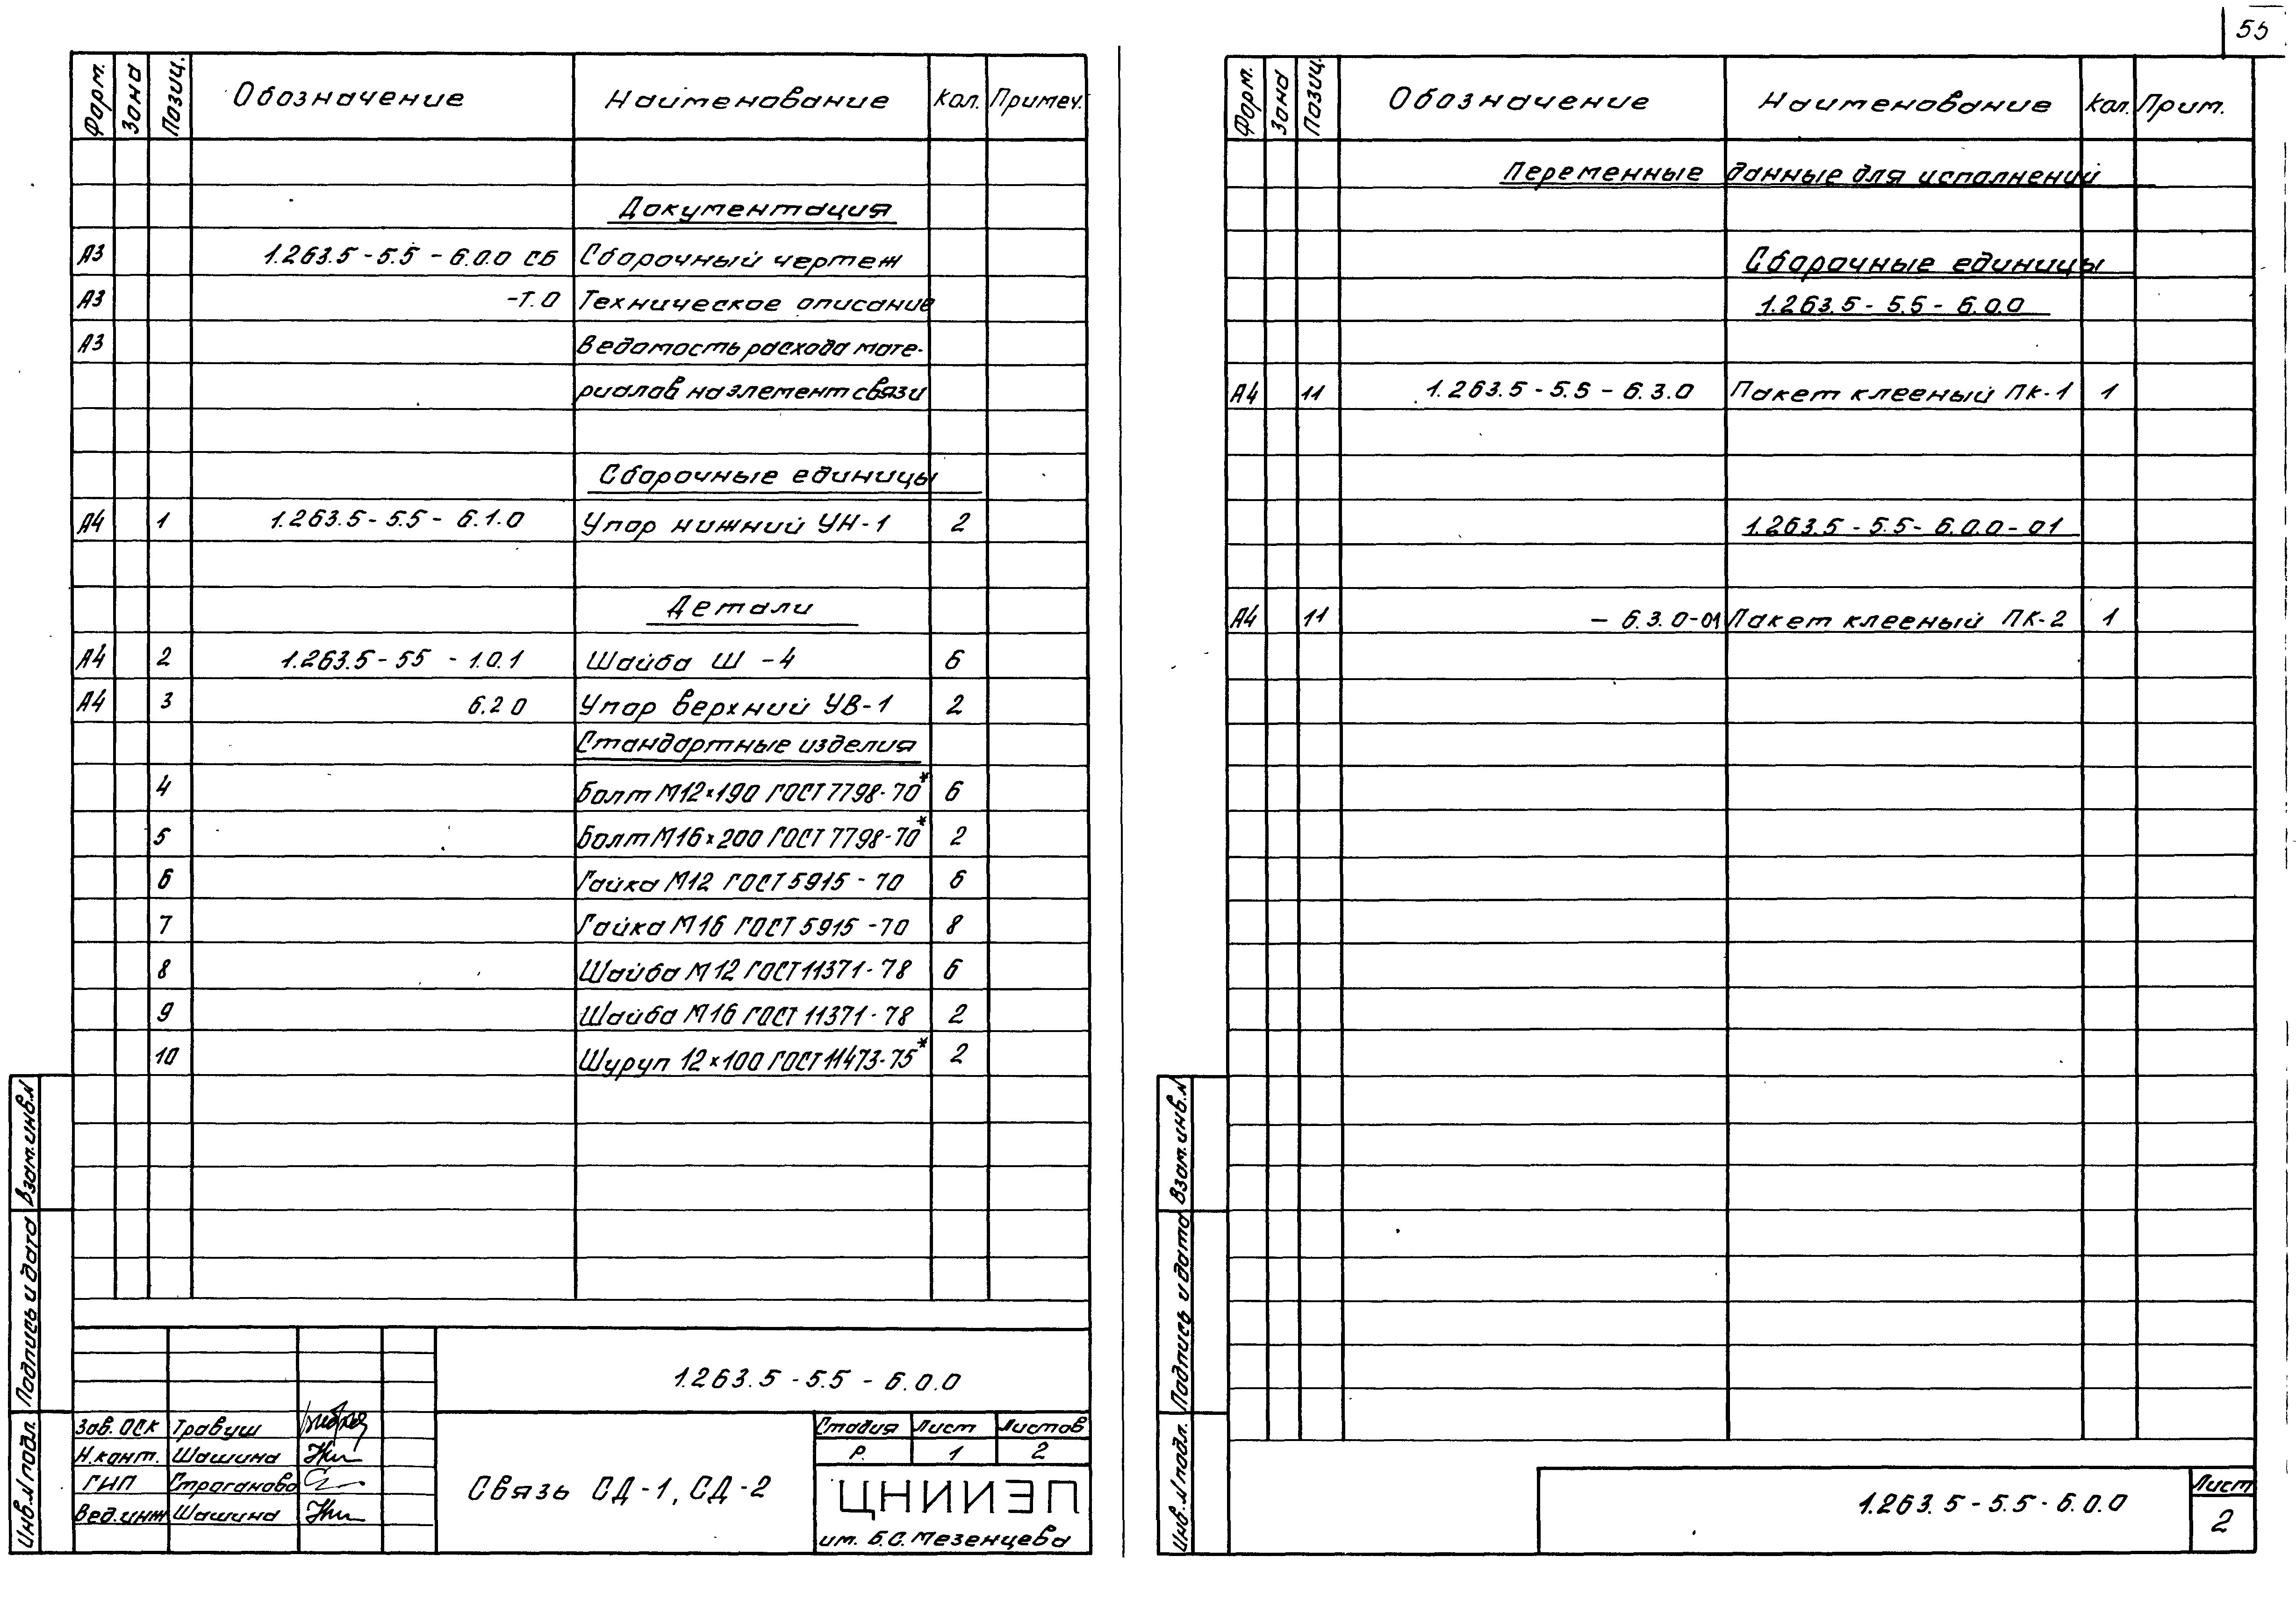 55
Форм. Зона Позиц. Обозначение Наименование Кол. Примеч.
Документация
А3 1.263.5-5.5-6.0.0 СБ Сборочный чертеж
А3 -Т.О Техническое описание
А3 Ведомость расхода мате-
риалов на элемент связи
Сборочные единицы
А4 1 1.263.5-5.5-6.1.0 Упор нижний УН-1 2
Детали
А4 2 1.263.5-55 -1.0.1 Шайба Ш-4 6
А4 3 6.2 0 Упор верхний УВ-1 2
Стандартные изделия
4 Болт М12×190 ГОСТ 7798-70* 6
5 Болт М16×200 ГОСТ 7798-70* 2
6 Гайка М12 ГОСТ 5915-70 6
7 Гайка М16 ГОСТ 5915-70 8
8 Шайба М12 ГОСТ 11371-78 6
9 Шайба М16 ГОСТ 11371-78 2
10 Шуруп 12×100 ГОСТ 11473-75* 2
Взам.инв.N
Подпись и дата
Инв.N подл.
1.263.5-5.5-6.0.0
Зав. ОСК Травуш
Н.конт. Шашина
ГИП Строганова
Вед.инж Шашина
Связь СД-1, СД-2
Стадия Лист Листов
Р. 1 2
ЦНИИЭП
им. Б.С. Мезенцева
Форм. Зона Позиц. Обозначение Наименование Кол. Прим.
Переменные данные для исполнений
Сборочные единицы
1.263.5-5.5-6.0.0
А4 11 1.263.5-5.5-6.3.0 Пакет клееный ПК-1 1
1.263.5-5.5-6.0.0-01
А4 11 -6.3.0-01 Пакет клееный ПК-2 1
Взам.инв.N
Подпись и дата
Инв.N подл.
1.263.5-5.5-6.0.0
Лист
2